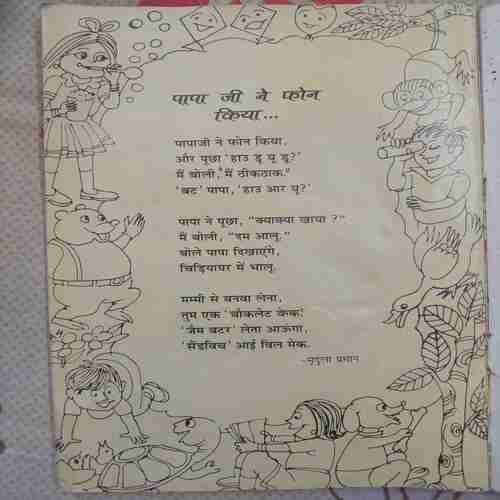 पापा जी ने फोन
किया...
पापाजी ने फोन किया,
और पूछा 'हाउ डू यू डू?'
मैं बोली, "मैं ठीकठाक."
'बट' पापा, 'हाउ आर यू?'
पापा ने पूछा, "क्याक्या खाया ?"
मैं बोली, "दम आलू."
बोले पापा दिखाएंगे,
चिड़ियाघर में भालू.
मम्मी से बनवा लेना,
तुम एक 'चौकलेट केक.'
'जैम बटर' लेता आऊंगा,
'सैंडविच' आई विल मेक.
-मृदुला प्रधान